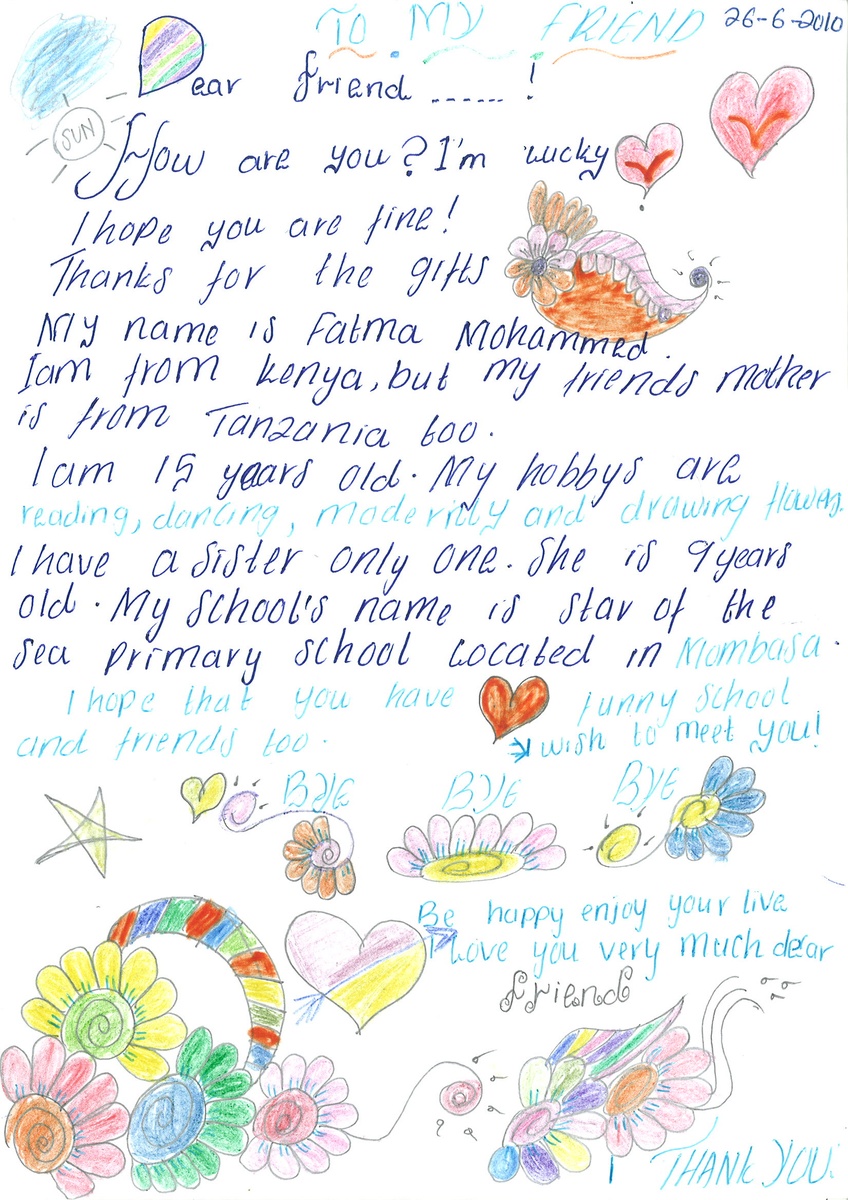 TO MY FRIEND 26-6-2010
Dear friend ......!
SUN
How are you? I'm lucky
I hope you are fine!
Thanks for the gifts
My name is Fatma Mohammed.
I am from kenya, but my friends mother
is from Tanzania too.
I am 15 years old. My hobbys are
reading, dancing, and drawing flowers.
I have a sister only one. She is 9 years
old. My school's name is star of the
sea primary school located in Mombasa.
I hope that you have funny school
and friends too. I wish to meet you!
BYE BYE BYE
Be happy enjoy your live
I love you very much dear
friend
THANK YOU.